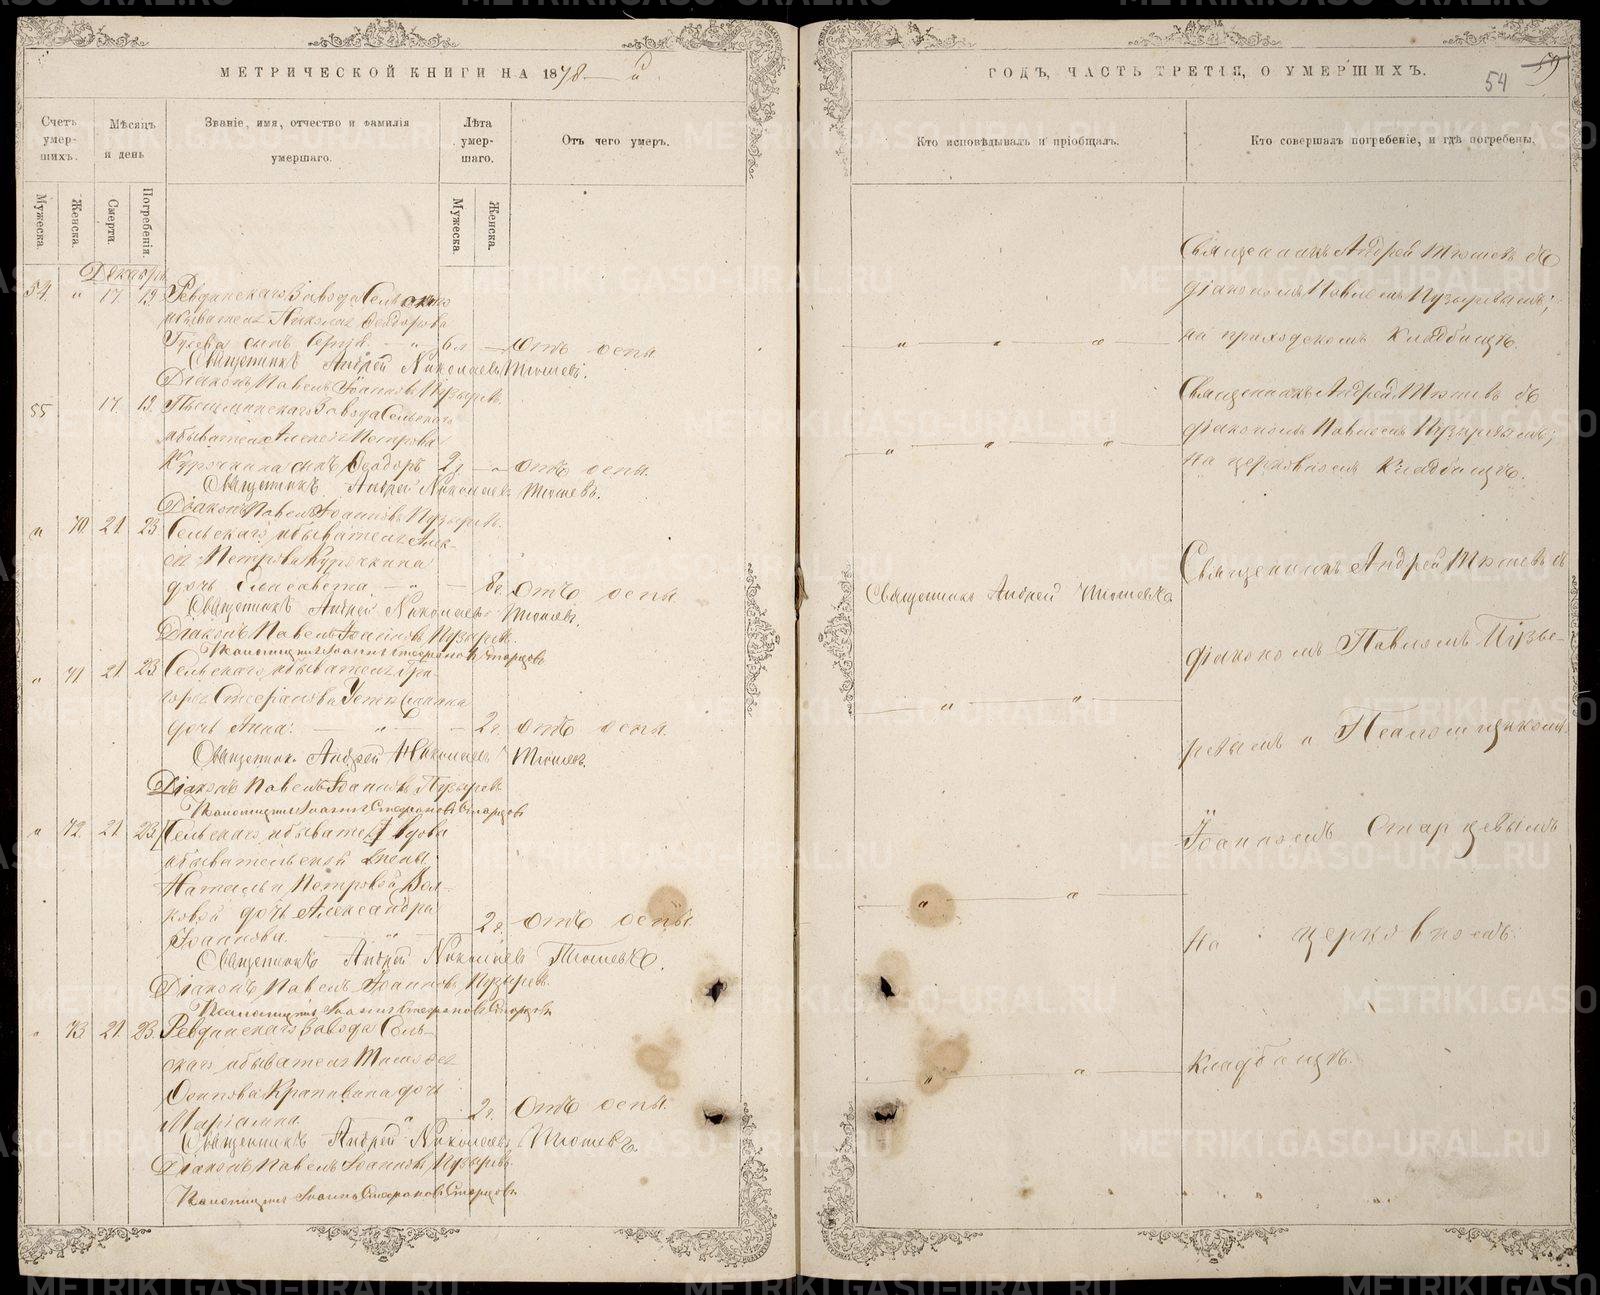 МЕТРИЧЕСКОЙ КНИГИ НА 1878 й
Счетъ умер- шихъ.
Мѣсяцъ и день
Званіе, имя, отчество и фамилія умершаго.
Лѣта умер- шаго.
Отъ чего умеръ.
Мужеска.
Женска.
Смерти.
Погребенія.
Мужеска
Женска.
Декабрь
54. " 17 19 Ревдинскаго Завода Сельскаго
обывателя Николая Ѳеодорова
Гусева сынъ Сергій. " 6 л — отъ оспы
Священникъ Андрей Николаевъ Тюшевъ.
Діаконъ Павелъ Іоанновъ Пузыревъ.
55 17. 19. Завода Сельскаго
обывателя Алексѣя Петрова
Курочкина сынъ Ѳеодоръ 2 г. — отъ оспы.
Священникъ Андрей Николаевъ Тюшевъ.
Діаконъ Павелъ Іоанновъ Пузыревъ.
" 70. 21 23 Сельскаго обывателя Алек-
сѣя Петрова Курочкина
дочь Елисавета. — " — 8 г. отъ оспы
Священникъ Андрей Николаевъ Тюшевъ.
Діаконъ Павелъ Іоанновъ Пузыревъ.
Псаломщикъ Іоаннъ Стефановъ Старцовъ
" 71 21 23 Сельскаго обывателя Гри-
горія Стефанова
дочь Анна: — " — 2 г. отъ оспы.
Священник. Андрей Николаевъ Тюшевъ.
Діаконъ Павелъ Іоанновъ Пузыревъ
Псаломщикъ Іоаннъ Стефановъ Старцовъ
" 72. 21. 23. Сельскаго обывателя вдова
обывательской жены
Натальи Петровой Вол-
ковой дочь Александра
Іоаннова. — " — 2 г. отъ оспы
Священникъ Андрей Николаевъ Тюшевъ.
Діаконъ Павелъ Іоанновъ Пузыревъ.
Псаломщикъ Іоаннъ Стефановъ Старцовъ
" 73. 21. 23. Ревдинскаго Завода Сель-
скаго обывателя Тимоѳея
Осипова Крапивина дочь
Маріамна. " 2 г. отъ оспы.
Священникъ Андрей Николаевъ Тюшевъ.
Діаконъ Павелъ Іоанновъ Пузыревъ.
Псаломщикъ Іоаннъ Стефановъ Старцовъ
ГОДЪ, ЧАСТЬ ТРЕТІЯ, О УМЕРШИХЪ.
54 59
Кто исповѣдывалъ и пріобщалъ.
Кто совершалъ погребеніе, и гдѣ погребены.
Священникъ Андрей Тюшевъ съ
діакономъ Павломъ Пузыревымъ;
" " " на приходскомъ кладбищѣ.
Священникъ Андрей Тюшевъ съ
діакономъ Павломъ Пузыревымъ;
" " " на церковномъ кладбищѣ.
Священникъ Андрей Тюшевъ.
Священникъ Андрей Тюшевъ съ
діакономъ Павломъ Пузы-
" "
ревымъ и Псаломщикомъ
Іоанномъ Старцевымъ
" "
на церковномъ
кладбищѣ.
" "
METRIKI.GASO-URAL.RU